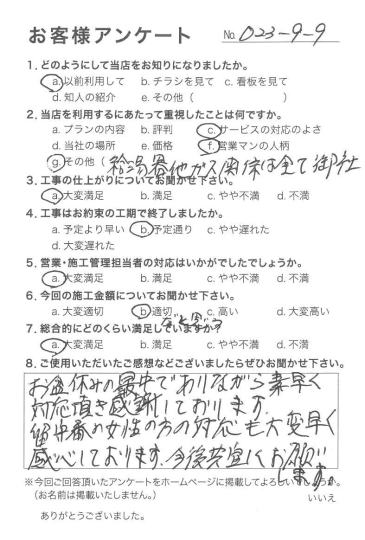 お客様アンケート No. 023-9-9
1. どのようにして当店をお知りになりましたか。
a. 以前利用して b. チラシを見て c. 看板を見て
d. 知人の紹介 e. その他（ ）
2. 当店を利用するにあたって重視したことは何ですか。
a. プランの内容 b. 評判 c. サービスの対応のよさ
d. 当社の場所 e. 価格 f. 営業マンの人柄
g. その他（給湯器他ガス関係は全て御社
3. 工事の仕上がりについてお聞かせ下さい。
a. 大変満足 b. 満足 c. やや不満 d. 不満
4. 工事はお約束の工期で終了しましたか。
a. 予定より早い b. 予定通り c. やや遅れた
d. 大変遅れた
5. 営業・施工管理担当者の対応はいかがでしたでしょうか。
a. 大変満足 b. 満足 c. やや不満 d. 不満
6. 今回の施工金額についてお聞かせ下さい。
a. 大変適切 b. 適切 c. 高い d. 大変高い
だと思う
7. 総合的にどのくらい満足していますか？
a. 大変満足 b. 満足 c. やや不満 d. 不満
8. ご使用いただいたご感想などございましたらぜひお聞かせ下さい。
お盆休みの最中でありながら素早く
対応頂き感謝しております。
留守番の女性の方の対応も大変早く
感心しております。今後共宜しくお願い
します。
※今回ご回答頂いたアンケートをホームページに掲載してよろしいでしょうか。
（お名前は掲載いたしません。） いいえ
ありがとうございました。